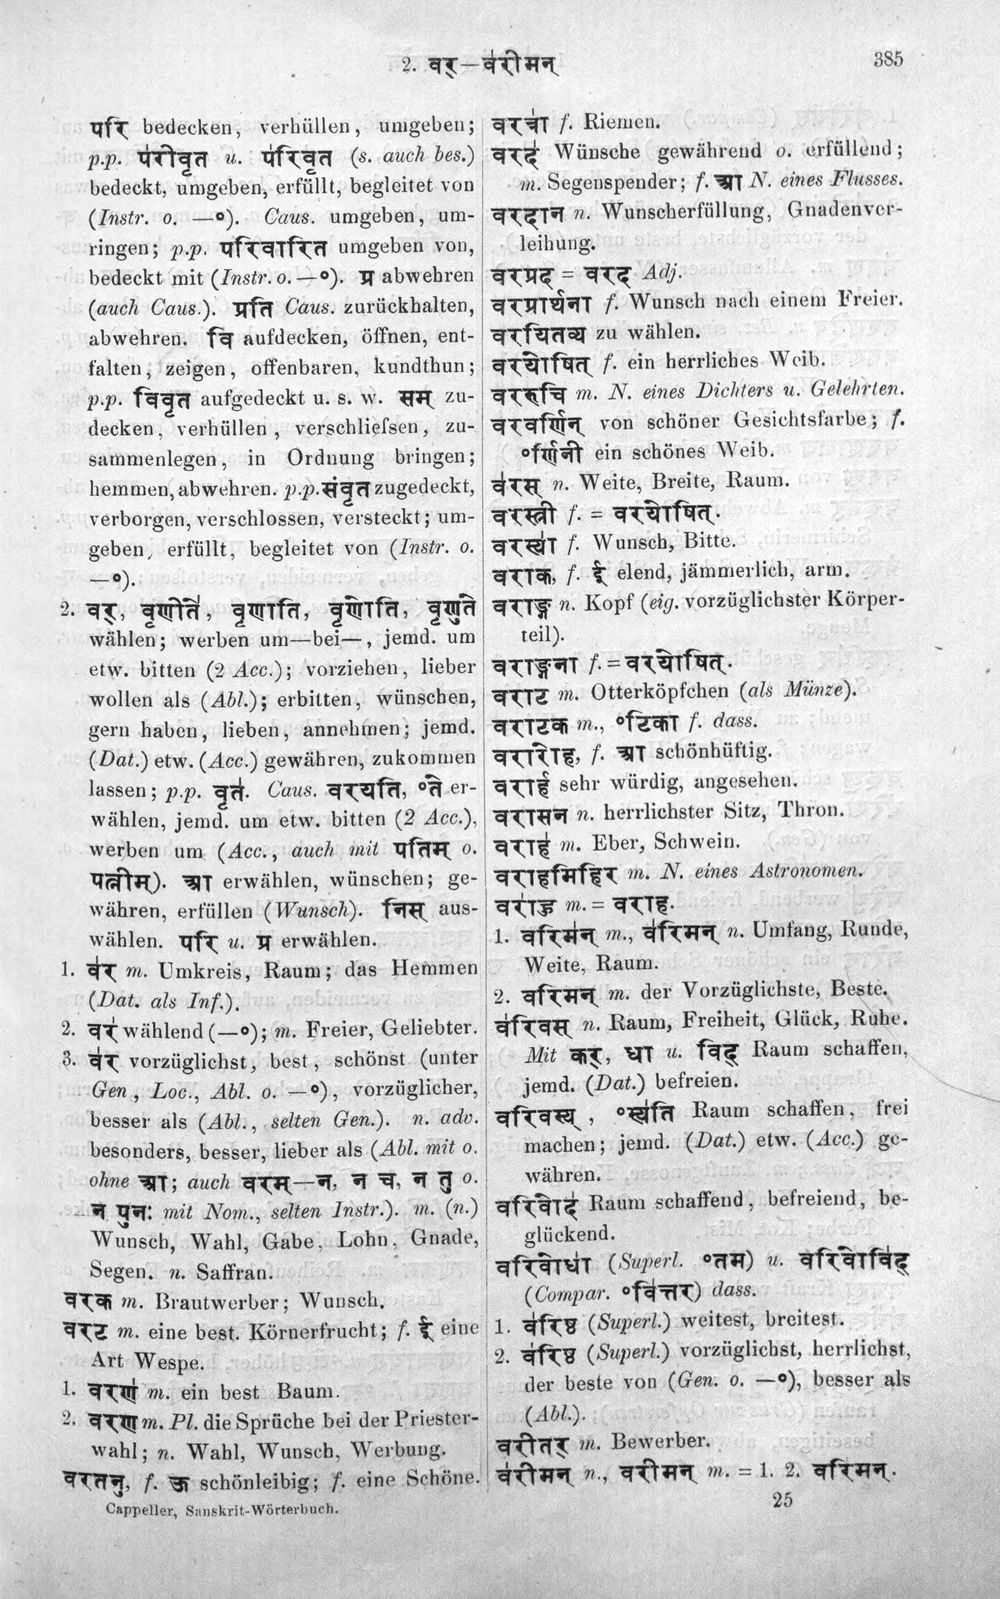 2. वर्—वरीमन्
385
परि bedecken, verhüllen, umgeben;
p.p. परीवृत u. परिवृत (s. auch bes.)
bedeckt, umgeben, erfüllt, begleitet von
(Instr. o. —°). Caus. umgeben, um-
ringen; p.p. परिवारित umgeben von,
bedeckt mit (Instr. o. —°). प्र abwehren
(auch Caus.). प्रति Caus. zurückhalten,
abwehren. वि aufdecken, öffnen, ent-
falten, zeigen, offenbaren, kundthun;
p.p. विवृत aufgedeckt u. s. w. सम् zu-
decken, verhüllen, verschliefsen, zu-
sammenlegen, in Ordnung bringen;
hemmen, abwehren. p.p. संवृत zugedeckt,
verborgen, verschlossen, versteckt; um-
geben, erfüllt, begleitet von (Instr. o.
—°).
2. वर्, वृणीते, वृणाति, वृणोति, वृणुते
wählen; werben um—bei—, jemd. um
etw. bitten (2 Acc.); vorziehen, lieber
wollen als (Abl.); erbitten, wünschen,
gern haben, lieben, annehmen; jemd.
(Dat.) etw. (Acc.) gewähren, zukommen
lassen; p.p. वृत. Caus. वरयति, °ते er-
wählen, jemd. um etw. bitten (2 Acc.),
werben um (Acc., auch mit पतिम् o.
पत्नीम्). आ erwählen, wünschen; ge-
währen, erfüllen (Wunsch). निस् aus-
wählen. परि u. प्र erwählen.
1. वर m. Umkreis, Raum; das Hemmen
(Dat. als Inf.).
2. वर wählend (—°); m. Freier, Geliebter.
3. वर vorzüglichst, best, schönst (unter
Gen, Loc., Abl. o. —°), vorzüglicher,
besser als (Abl., selten Gen.). n. adv.
besonders, besser, lieber als (Abl. mit o.
ohne आ; auch वरम्—न, न च, न तु o.
न पुनः mit Nom., selten Instr.). m. (n.)
Wunsch, Wahl, Gabe, Lohn, Gnade,
Segen. n. Saffran.
वरक m. Brautwerber; Wunsch.
वरट m. eine best. Körnerfrucht; f. ई eine
Art Wespe.
1. वरण m. ein best Baum.
2. वरण m. Pl. die Sprüche bei der Priester-
wahl; n. Wahl, Wunsch, Werbung.
वरतनु, f. ऊ schönleibig; f. eine Schöne.
Cappeller, Sanskrit-Wörterbuch.
वरत्रा f. Riemen.
वरद Wünsche gewährend o. erfüllend;
m. Segenspender; f. आ N. eines Flusses.
वरदान n. Wunscherfüllung, Gnadenver-
leihung.
वरप्रद = वरद Adj.
वरप्रार्थना f. Wunsch nach einem Freier.
वरयितव्य zu wählen.
वरयोषित् f. ein herrliches Weib.
वररुचि m. N. eines Dichters u. Gelehrten.
वरवर्णिन् von schöner Gesichtsfarbe; f.
°र्णिनी ein schönes Weib.
वरस् n. Weite, Breite, Raum.
वरस्त्री f. = वरयोषित्.
वरस्या f. Wunsch, Bitte.
वराक, f. ई elend, jämmerlich, arm.
वराङ्ग n. Kopf (eig. vorzüglichster Körper-
teil).
वराङ्गना f. = वरयोषित्.
वराट m. Otterköpfchen (als Münze).
वराटक m., °टिका f. dass.
वरारोह, f. आ schönhüftig.
वरार्ह sehr würdig, angesehen.
वरासन n. herrlichster Sitz, Thron.
वराह m. Eber, Schwein.
वराहमिहिर m. N. eines Astronomen.
वराहु m. = वराह.
1. वरिमन् m., वरिमन् n. Umfang, Runde,
Weite, Raum.
2. वरिमन् m. der Vorzüglichste, Beste.
वरिवस् n. Raum, Freiheit, Glück, Ruhe.
Mit कर्, धा u. विद् Raum schaffen,
jemd. (Dat.) befreien.
वरिवस्य्, °स्यति Raum schaffen, frei
machen; jemd. (Dat.) etw. (Acc.) ge-
währen.
वरिवोद Raum schaffend, befreiend, be-
glückend.
वरिवोधा (Superl. °तम) u. वरिवोविद्
(Compar. °वित्तर) dass.
1. वरिष्ठ (Superl.) weitest, breitest.
2. वरिष्ठ (Superl.) vorzüglichst, herrlichst,
der beste von (Gen. o. —°), besser als
(Abl.).
वरीतर् m. Bewerber.
वरीमन् n., वरीमन् m. = 1. 2. वरिमन्.
25